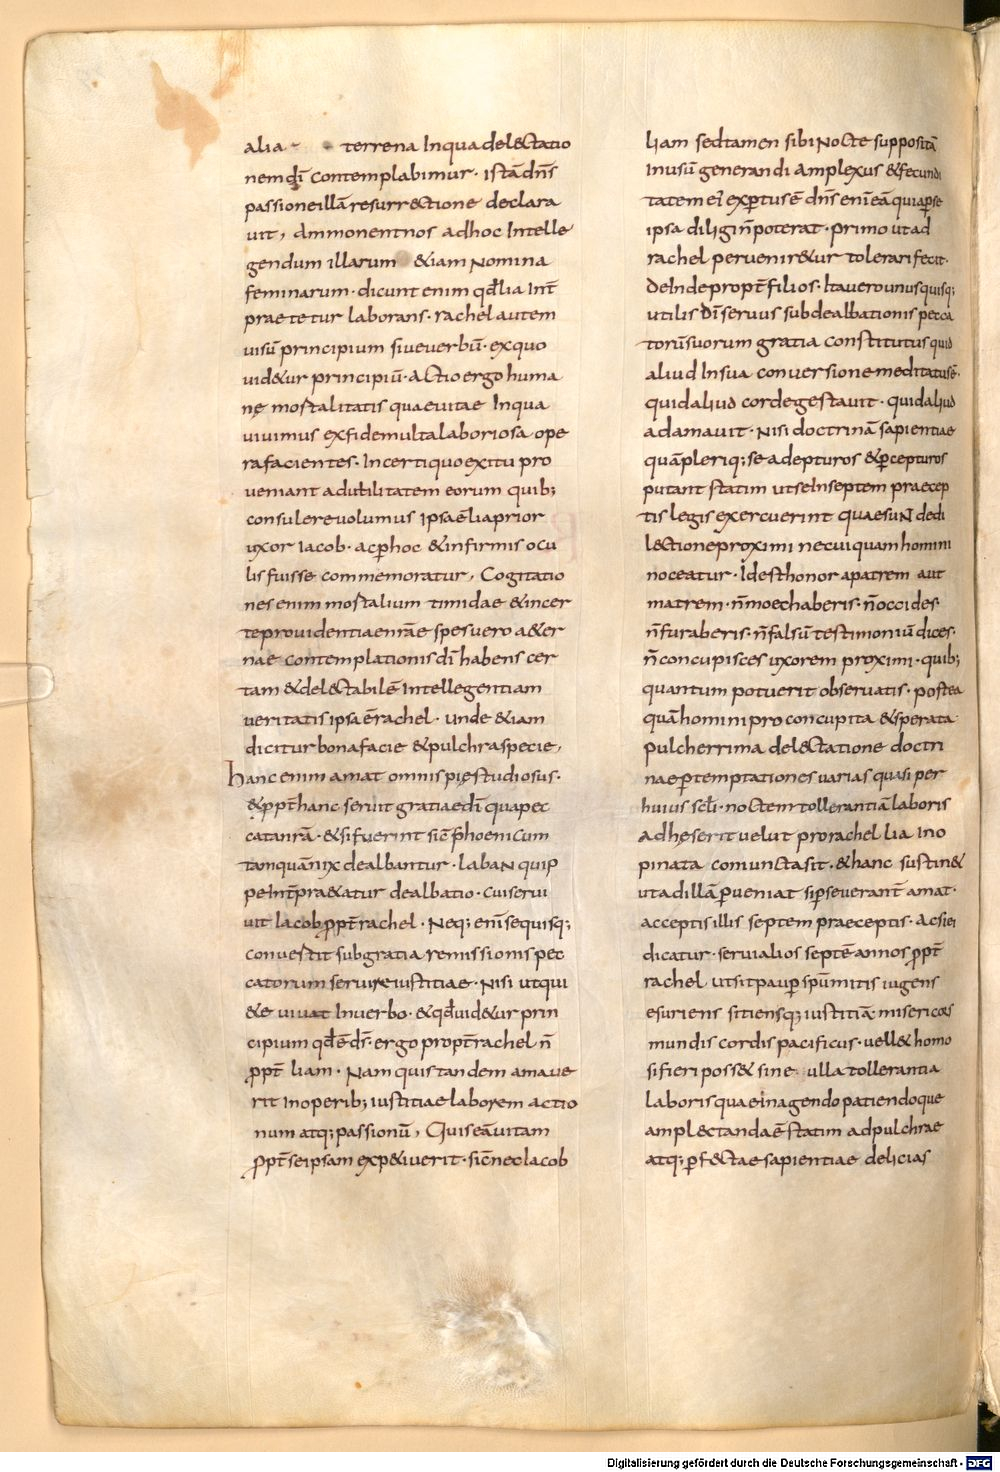 alia terrena Inqua delectatio
nem dī contemplabimur· istā dn̄s
passione illā resurrectione declara
uit, Ammonent nos adhoc Intelle
gendum illarum &iam Nomina
feminarum· dicunt enim qđ lia Int̄
praetetur laborans· rachel autem
uisū principium siueuerbū· exquo
uid&ur principiū· Actio ergo huma
nę mortalitatis quaeuitae Inqua
uiuimus exfide multa laboriosa ope
rafacientes· Incerti quo exitu pro
ueniant ad utilitatem eorum quib;
consulere uolumus Ipsaē lia prior
uxor Iacob· ac ꝑhoc &infirmis ocu
lis fuisse commemoratur, Cogitatio
nes enim mortalium timidae &incer
te prouidentiae nr̄ae spes uero a&er
nae contemplationis dī habens cer
tam &delectabilē Intellegentiam
ueritatis ipsa ē rachel· unde &iam
dicitur bona facie &pulchra specie,
hanc enim amat omnis pię studiosus·
&ꝓpt̄ hanc seruit gratiae dī qua pec
cata nr̄a· &si fuerint sic̄ phoenicum
tamquā nix dealbantur· labaN quip
pe Int̄pra&atur dealbatio· Cui serui
uit Iacob ꝓpt̄ rachel· Neq; enī se quisq;
conuertit sub gratia remissionis pec
catorum seruire iustitiae· Nisi ut qui
&e uiuat Inuerbo· &qđ uid&ur prin
cipium qđ ē ds̄· ergo propt̄ rachel n̄
ꝓpt̄ liam· Nam quis tandem amaue
rit Inoperib; iustitiae laborem actio
num atq; passionū, Quis eā uitam
ꝓpt̄ seipsam exp&iuerit· sic̄ nec Iacob
liam sed tamen sibi Nocte suppositā
Inusū generandi Amplexus &fecundi
tatem ei expertus ē dn̄s enī eā quia ꝑ se
ipsa diligi n̄ poterat· primo ut ad
rachel perueniretur tolerari fecit·
deInde propt̄ filios· Ita uero unusquisq;
utilis dī seruus sub dealbationis pecca
torū suorum gratia constitutus quid
aliud Insua conuersione meditatus ē·
quid aliud corde gestauit· quid aliud
adamauit· Nisi doctrinā sapientiae
quā pleriq; se adepturos &ꝑcepturos
putant statim ut se Inseptem praecep
tis legis exercuerint quae suN de di
lectione proximi ne cuiquam homini
noceatur· Id est honora patrem aut
matrem· n̄ moechaberis· n̄ occides·
n̄ furaberis· n̄ falsū testimoniū dices·
n̄ concupisces uxorem proximi· quib;
quantum potuerit obseruatis· postea
quā homini pro concupita &sperata
pulcherrima delectatione doctri
nae ꝑ temptationes uarias quasi per
huius scl̄i· noctem tollerantiā laboris
adhęserit uelut pro rachel lia Ino
pinata coniuncta sit· &hanc sustin&
ut ad illā ꝑueniat si ꝑseuerant̄ amat·
acceptis illis septem praeceptis· ac si ei
dicatur· serui alios septē annos ꝓpt̄
rachel ut sit pauꝑ sp̄u mitis lugens
esuriens sitiensq; iustitiā misericors
mundis cordis pacificus· uell& homo
si fieri poss& sine ulla tollerantia
laboris quae inagendo patiendoque
amplectanda ē statim ad pulchrae
atq; ꝑfectae sapientiae delicias
Digitalisierung gefördert durch die Deutsche Forschungsgemeinschaft - DFG